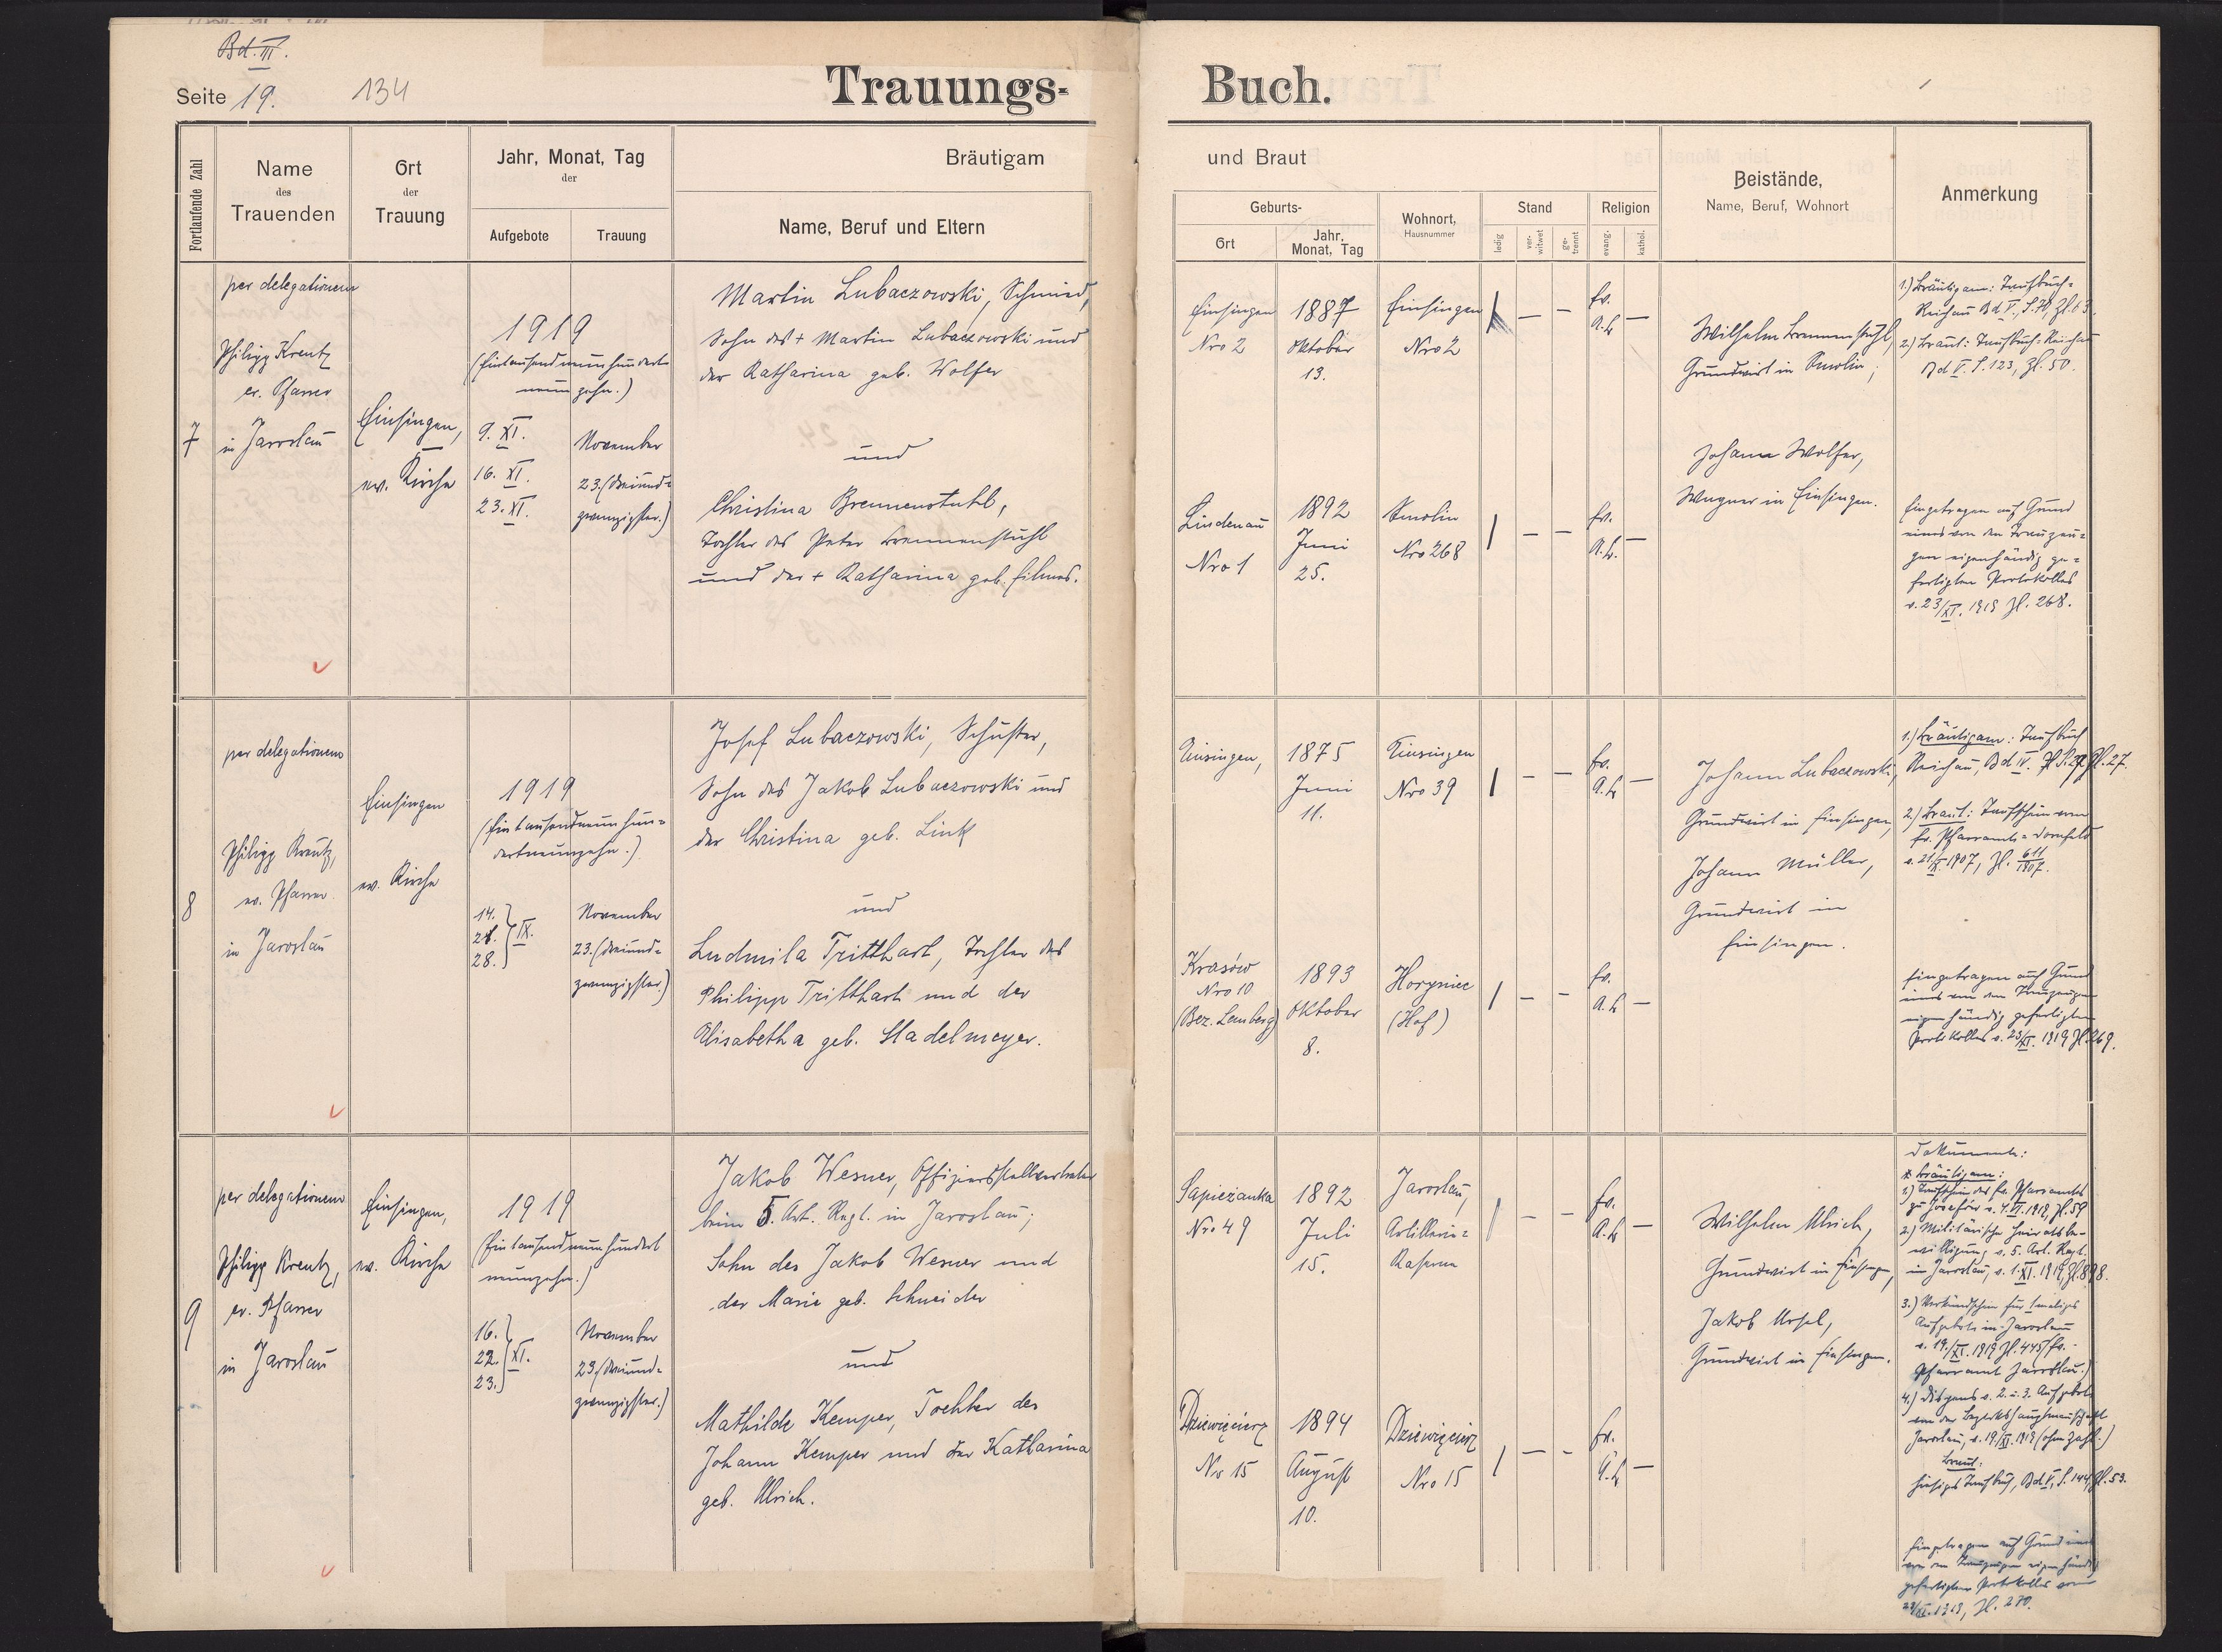 Bd. III.
Seite 19.
134
Trauungs-
Buch.
Fortlaufende Zahl
Name
des
Trauenden
Ort
der
Trauung
Jahr, Monat, Tag
der
Aufgebote
Trauung
Bräutigam
Name, Beruf und Eltern
und Braut
Geburts-
Ort
Jahr,
Monat, Tag
Wohnort,
Hausnummer
Stand
ledig
ver-
witwet
ge-
trennt
Religion
evang.
kathol.
Beistände,
Name, Beruf, Wohnort
Anmerkung
7
per delegationem
Philipp Kreutz
ev. Pfarrer
in Jaroslau
Einsingen,
ev. Kirche
1919
(Eintausendneunhundert
neunzehn.)
9. XI.
16. XI.
23. XI.
November
23. (dreiund=
zwanzigster.)
Martin Lubaczowski, Schmied,
Sohn des + Martin Lubaczowski und
der Katharina geb. Wolfer
und
Christina Brennenstuhl,
Tochter des Peter Brennenstuhl
und der + Katharina geb. Filmes.
Einsingen
Nro 2
1887
Oktober
13.
Einsingen
Nro 2
— —
Ev.
A.B. —
Lindenau
Nro 1
1892
Juni
25.
Smolin
Nro 268
— —
Ev.
A.B. —
Wilhelm Brennenstuhl,
Grundwirt in Smolin;
Johann Wolfer,
Wagner in Einsingen.
1.) Bräutigam: Taufbuch-
Reichau Bd V.,
2.) Braut: Taufbuch: Reichau
Bd V. S. 123, Zl. 50.
Eingetragen auf Grund
eines von den Trauzeu=
gen eigenhändig ge=
fertigten Protokolles
v. 23/XI. 1919 Zl. 268.
8
per delegationem
Philipp Kreutz,
ev. Pfarrer
in Jaroslau
Einsingen
ev. Kirche
1919
(Eintausendneunhun=
dertneunzehn.)
14.
21.
28.
IX.
November
23. (dreiund=
zwanzigster.)
Josef Lubaczowski, Schuster,
Sohn des Jakob Lubaczowski und
der Christina geb. Link
und
Ludmila Tritthart, Tochter des
Philipp Tritthart und der
Elisabetha geb. Stadelmeyer.
Einsingen,
1875
Juni
11.
Einsingen
Nro 39
— —
Ev.
A.B. —
Krasów
Nro 10
(Bez. Lemberg)
1893
Oktober
8.
Horyniec
(Hof)
— —
Ev.
A.B. —
Johann Lubaczowski,
Grundwirt in Einsingen,
Johann Müller,
Grundwirt in
Einsingen.
1.) Bräutigam: Taufbuch
Reichau, Bd IV. Zl. 27.
2.) Braut: Taufschein vom
Ev. Pfarramte-Dornfeld
1907, Zl. 611/1907.
Eingetragen auf Grund
eines von den Trauzeugen
eigenhändig gefertigten
Protokolles v. 23/XI. 1919 Zl. 269.
9
per delegationem
Philipp Kreutz,
ev. Pfarrer
in Jaroslau
Einsingen,
ev. Kirche
1919
(Eintausendneunhundert
neunzehn.)
16.
22.
23.
XI.
November
23. (dreiund=
zwanzigster.)
Jakob Wesner, Offiziersstellvertreter
beim 5. Art. Regt. in Jaroslau;
Sohn des Jakob Wesner und
der Marie geb. Schneider
und
Mathilde Kemper, Tochter des
Johann Kemper und der Katharina
geb. Ulrich.
Sapieżanka
Nro 49
1892
Juli
15.
Jaroslau,
Artillerie=
Kaserne
— —
Ev.
A.B. —
Dziewięcierz
Nr 15
1894
August
10.
Dziewięcierz
Nro 15
— —
Ev.
A.B. —
Wilhelm Ulrich,
Grundwirt in Einsingen,
Jakob Ursel,
Grundwirt in Einsingen.
Dokumente:
Bräutigam:
1.) Taufschein des Ev. Pfarramtes
zu Josefów
2.) Militärische Heiratsbe-
willigung v. 5. Art. Regt.
in Jaroslau, v. 1. XI. 1919, Zl. 898.
3.) Verkündschein für 1maliges
Aufgebot in Jaroslau
v. 19./XI. 1919 Zl. 445/Ev.
Pfarramt Jaroslau.)
4.) Dispens v. 2. u. 3. Aufgebote
von der Bezirkshauptmannschaft
Jaroslau, v. 19./XI. 1919 (ohne Zahl.)
Braut:
hiesiges Taufbuch, Bd V, S. 144, Zl. 53.
Eingetragen auf Grund eines
von den Trauzeugen eigenhändig
gefertigten Protokolles vom
23/XI. 1919, Zl. 270.